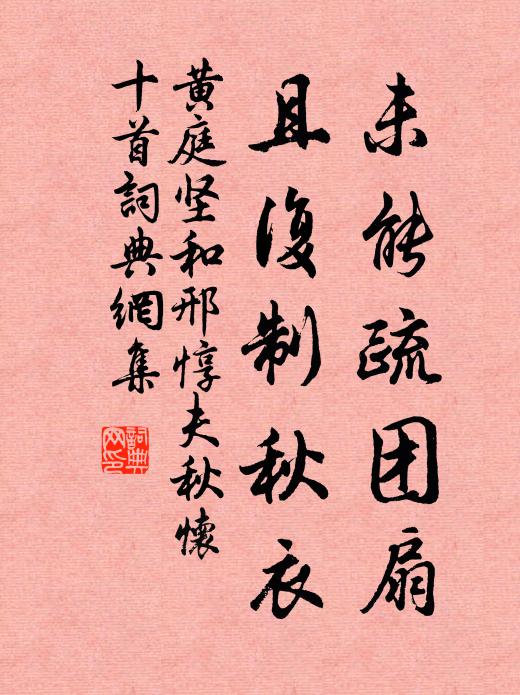 未能疏团扇
且復制秋衣
黄庭坚和邢惇夫秋懷
十首詞典網集
詞典网印